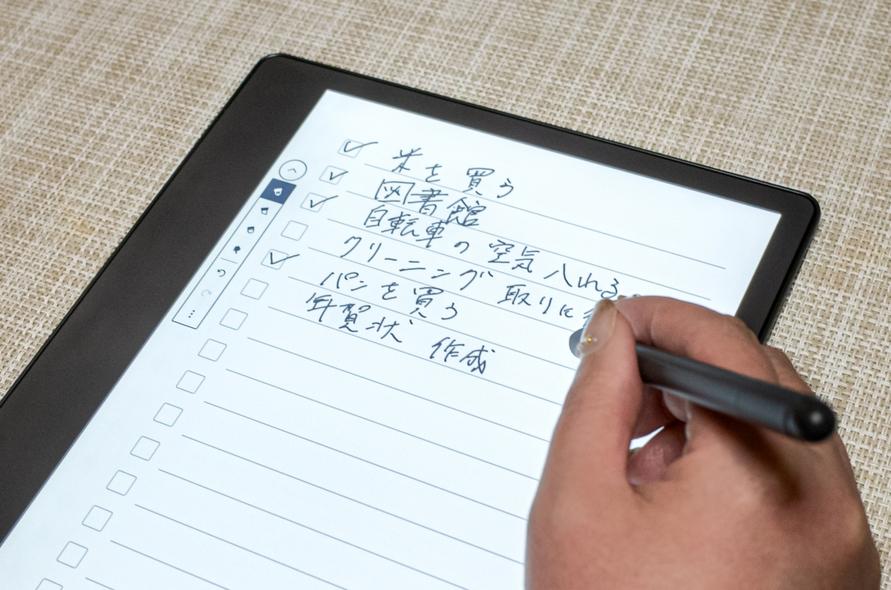 米を買う
図書館
自転車の空気入れる
クリーニング 取りに
パンを買う
年賀状 作成